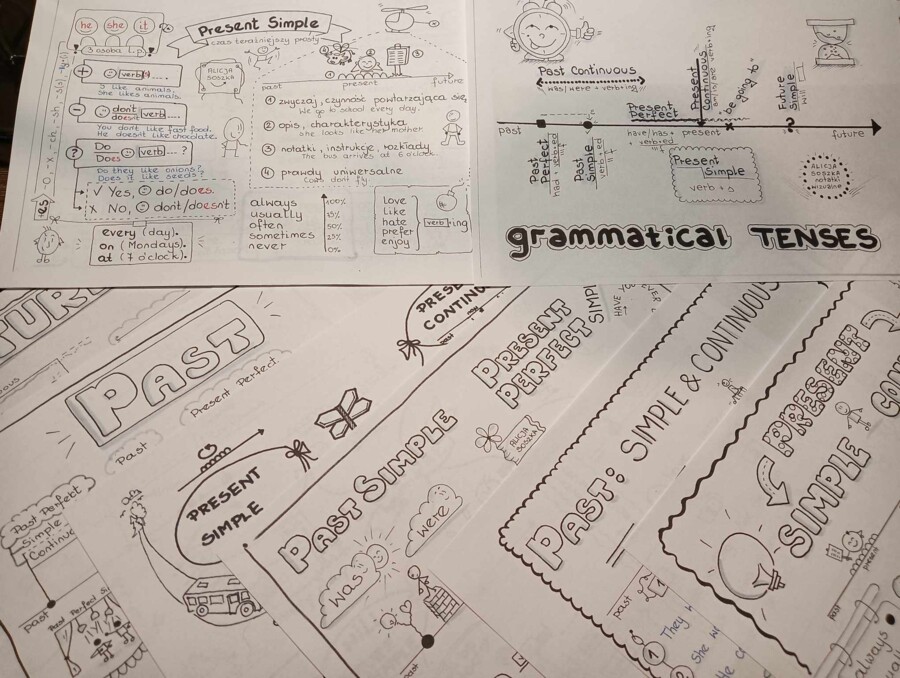 Present Simple
czas teraźniejszy prosty
he she it
3 osoba l.p.
+ verb(s) ....
I like animals.
She likes animals.
- don't
doesn't verb....
You don't like fast food.
He doesn't like chocolate.
? Do
Does verb....?
Do they like onions?
Does it like seeds?
✓ Yes, do/does.
X No, don't/doesn't
every (day).
on (Mondays).
at (7 o'clock).
es
ALICJA
SOSZKA
past present future
① zwyczaj, czynność powtarzająca się,
We go to school every day.
② opis, charakterystyka
She looks like her mother.
③ notatki, instrukcje, rozkłady
The bus arrives at 6 o'clock.
④ prawdy uniwersalne
Cows don't fly
always 100%
usually
often 50%
sometimes 25%
never 0%
love
like
hate
prefer
enjoy
verb+ing
Past Continuous
was/were + verb+ing
Present
Continuous
am/is/are+verb+ing
"be going to"
Future
Simple
will
Present
Perfect
have/has
+ verb+ed
III f
past present future
Past
Perfect
had + verb+ed
III f
Past
Simple
verb+ed
II f
Present
Simple
verb + s
ALICJA
SOSZKA
notatki
wizualne
grammatical TENSES
PAST
Past
Present Perfect
Past Perfect
Simple
past
PRESENT
SIMPLE
PRESENT
PERFECT
SIMPLE
HAVE YOU EVER
ALICJA
SOSZKA
PAST SIMPLE
was
were
past
PAST: SIMPLE & CONTINUOUS
past
1
① They
She
PRESENT
SIMPLE
past
present
always